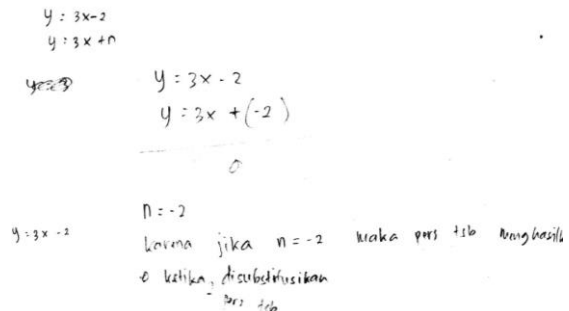 y = 3x - 2
y = 3x + n
y = 3x - 2
y = 3x + (-2)
0
n = -2
y = 3x - 2
karena jika n = -2 maka pers tsb menghasilk
0 ketika disubstitusikan
pers tsb